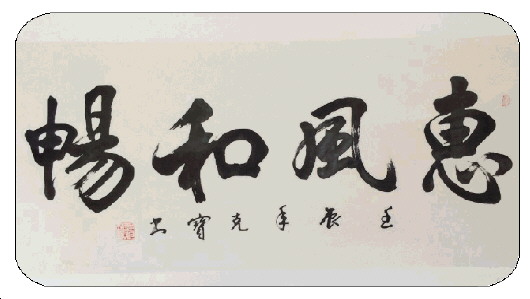 惠風和暢
壬辰年克寶书